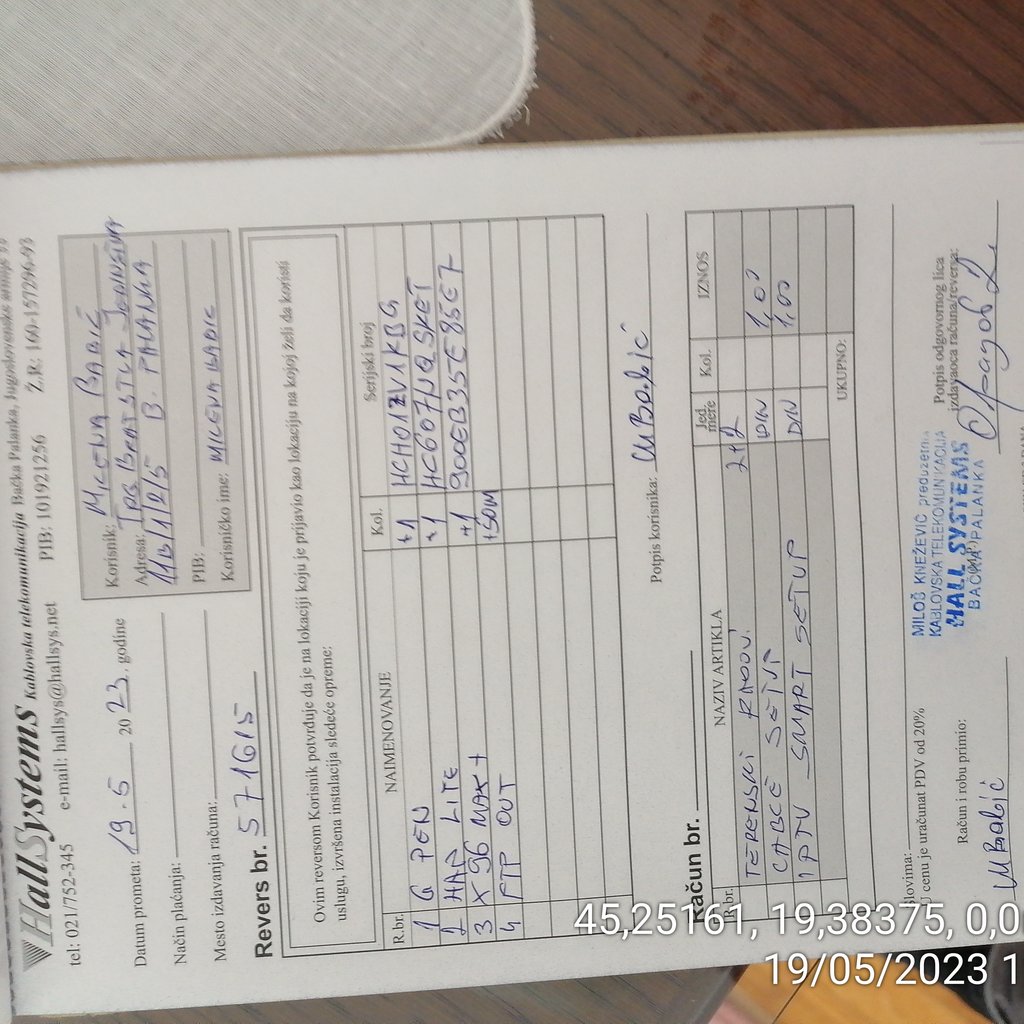 HallSystems Kablovska telekomunikacija Bačka Palanka, Jugoslovenske armije
tel: 021/752-345 e-mail: hallsys@hallsys.net PIB: 101921256 Ž.R.: 160-157296-93
Datum prometa: 19.5 2023. godine
Način plaćanja:
Mesto izdavanja računa:
Korisnik: MILENA BABIĆ
Adresa: TRG BRATSTVA JEDINSTVA
11B/1/2/5 B. PALANKA
PIB:
Korisničko ime: MILENA BABIC
Revers br. 571615
Ovim reversom Korisnik potvrđuje da je na lokaciji koju je prijavio kao lokaciju na kojoj želi da koristi
uslugu, izvršena instalacija sledeće opreme:
R.br. NAIMENOVANJE Kol. Serijski broj
1 G PEN +1 HCH01ZV1KBG
2 HAP LITE +1 HC607NQSKET
3 X96 MAX+ +1 900EB35E85E7
4 FTP OUT +50M
Potpis korisnika: MBabić
Račun br.
R.br. NAZIV ARTIKLA Jed. mere Kol. IZNOS
TERENSKI RADOVI 2+2
CABLE SETUP DIN 1,00
IPTV SMART SETUP DIN 1,00
UKUPNO:
slovima:
U cenu je uračunat PDV od 20%
Račun i robu primio:
MBabić
MILOŠ KNEŽEVIĆ preduzetnik
KABLOVSKA TELEKOMUNIKACIJA
HALL SYSTEMS
BAČKA PALANKA
Potpis odgovornog lica
izdavaoca računa/reversa:
45,25161, 19,38375, 0,0
19/05/2023 1